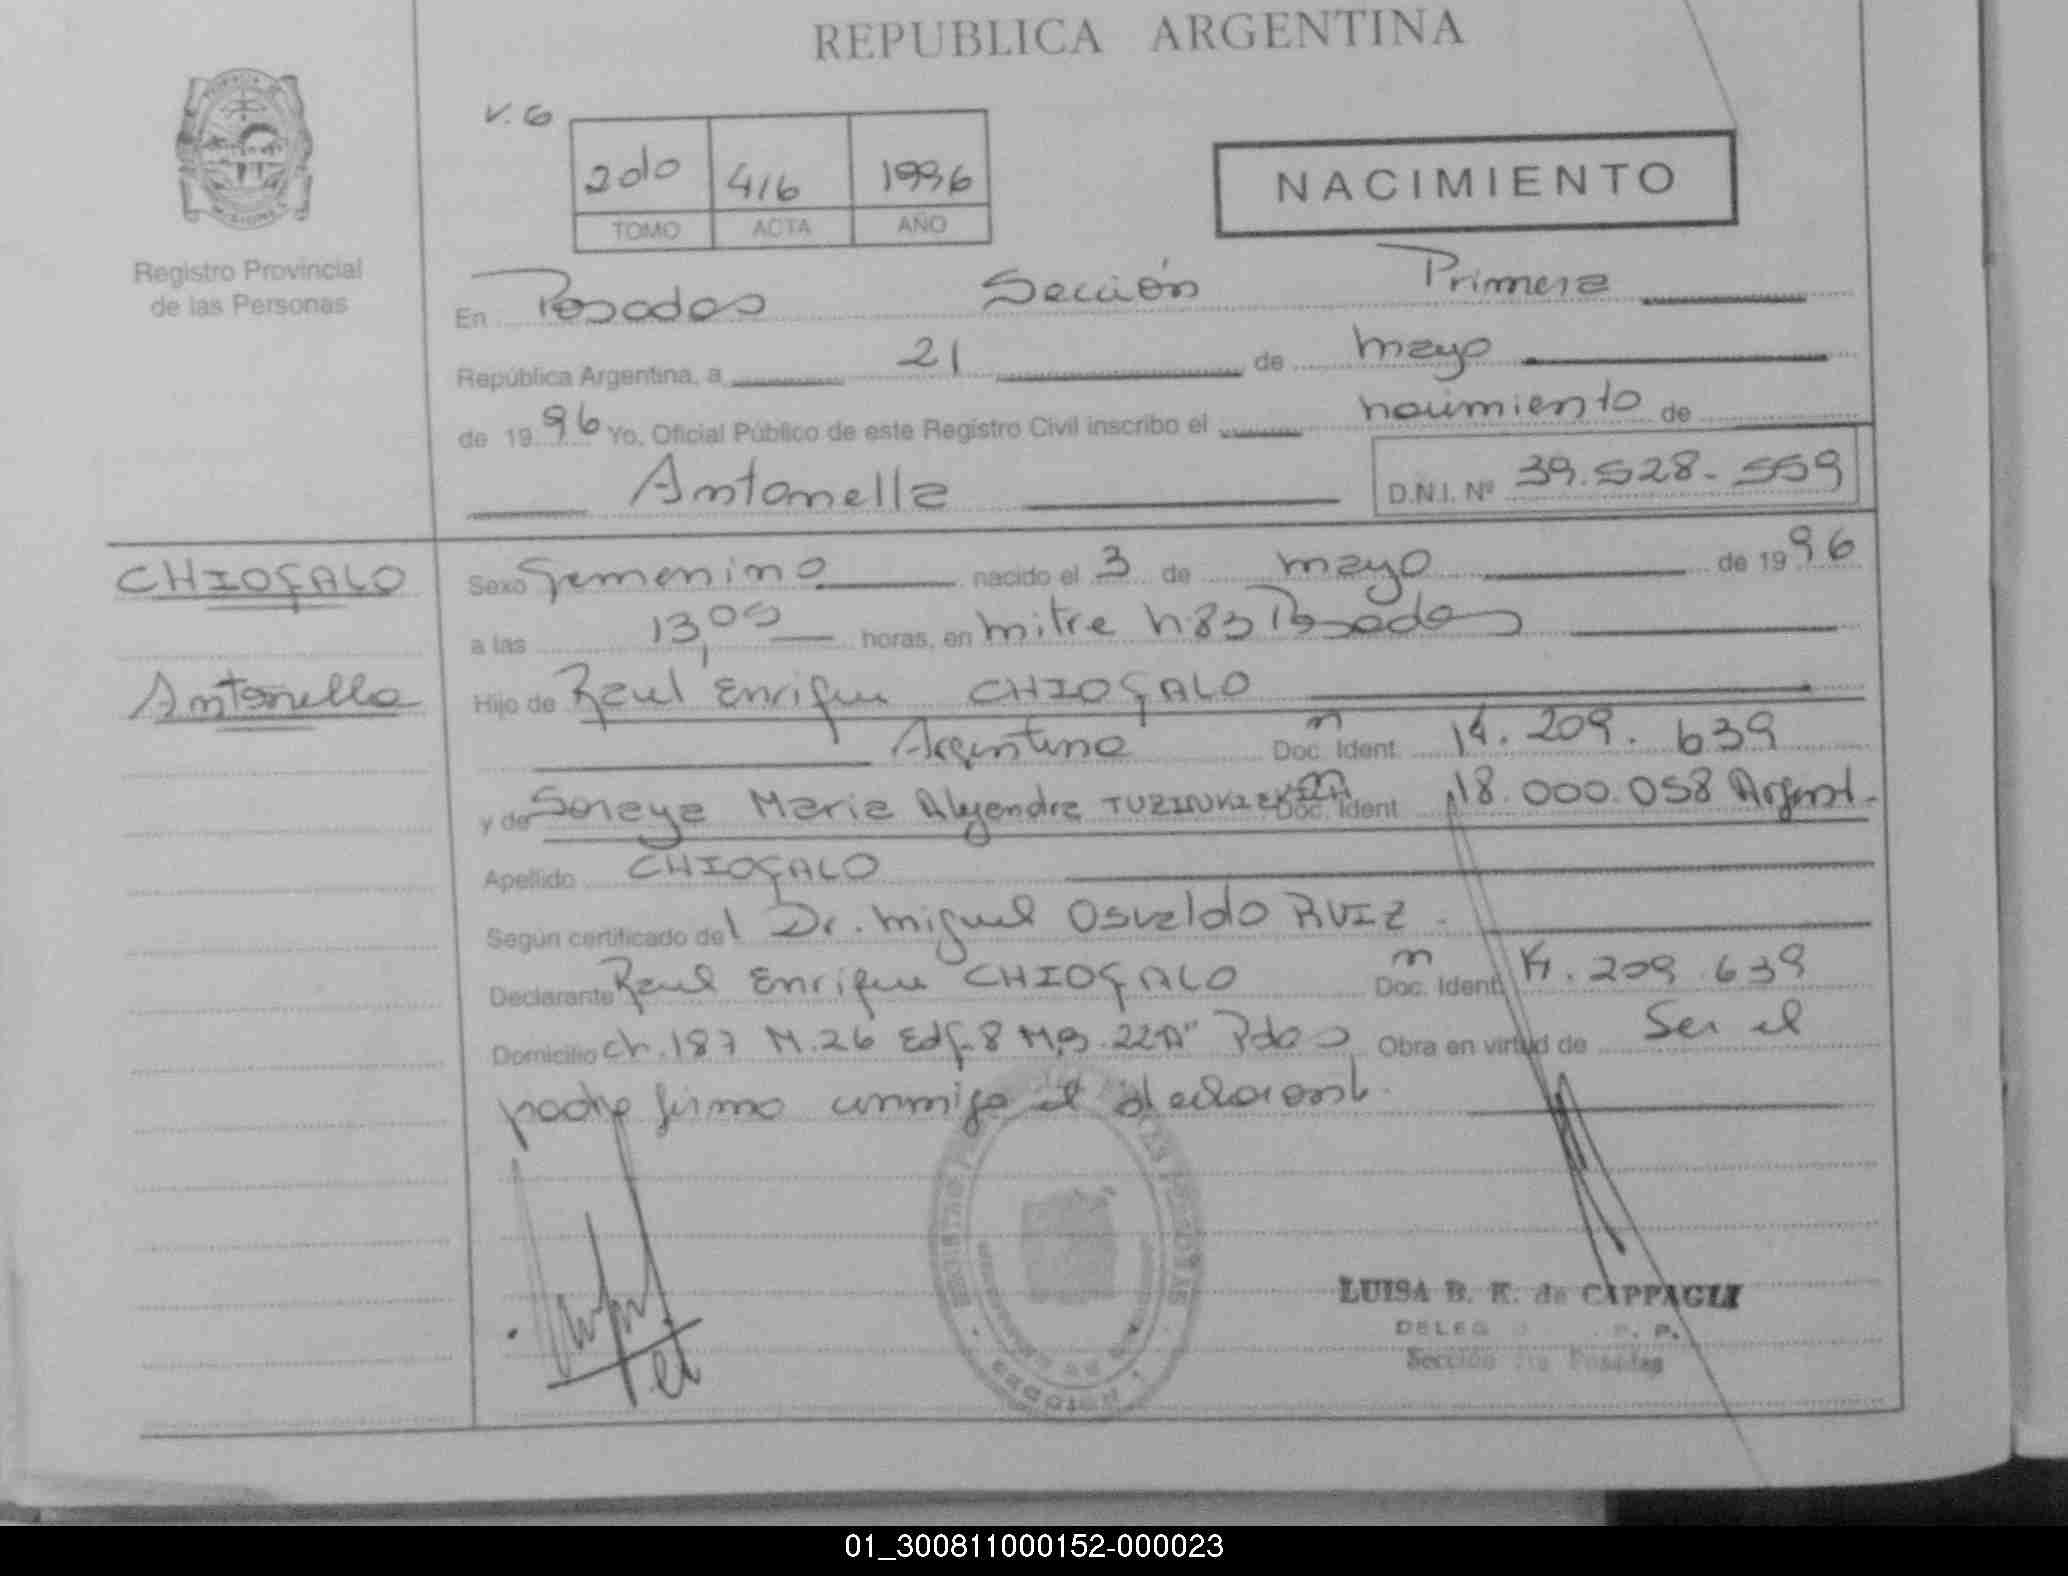 REPUBLICA ARGENTINA
V. 6
2do 416 1996
TOMO ACTA AÑO
NACIMIENTO
Registro Provincial
de las Personas
En Posadas Sección Primera
República Argentina, a 21 de mayo
de 1996 Yo, Oficial Público de este Registro Civil inscribo el nacimiento de
Antonella D.N.I. Nº 39.528.559
CHIOGALO
Antonella
Sexo Femenino nacido el 3 de mayo de 1996
a las 13,05 horas, en mitre Posadas
Hijo de Raul Enrique CHIOGALO
Argentino Doc. Ident. 14.209.639
y de Soraya Maria Alejandra Doc. Ident 18.000.058 Argent.
Apellido CHIOGALO
Según certificado del Dr. Miguel Osvaldo RUIZ
Declarante Raul Enrique CHIOGALO Doc. Ident. 14.209.639
Domicilio Ch. 187 M.26 Edf. 8 Pdas Obra en virtud de Ser el
padre firma conmigo el declarant.
LUISA B. K. de CAPPAGLI
DELEG R. P.
Sección 1ra Posadas
01_300811000152-000023